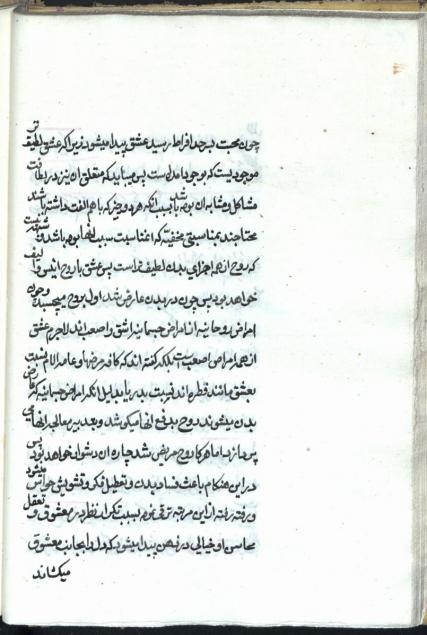 چون محبت بحد افراط رسید عشق پیدا میشود زیرا که عشق لطیف تر
موجودیست که بوجود امده است پس میباید که متعلق ان نیز در لطافت
مشاکل و مشابه ان بوده باشد بسبب انکه هر دو چیز که با هم الفت داشته باشند
محتاجند بمناسبتی مخفیه که انمناسبت سبب انها بوده باشد و شبهه نیست
که روح از همه اجزای بدن لطیف تر است پس عشق با روح انیس و الیف
خواهد بود پس چون در بدن عارض شد اول بروح میچسبد و چون
امراض روحانیه از امراض جسمانیه اشق و اصعب اند لاجرم عشق
از همه امراض اصعب است بلکه گفته اند که کافه مرضها و عامه الام نسبت
بعشق مانند قطره اند نسبت بدریا بدلیل انکه امراض جسمانیه که عارض
بدن میشوند روح بدفع انها میکوشد و بعد بیر معالجه انها می
پردازد اما هر گاه روح مریض شد چاره ان دشوار خواهد بود پس
در این هنکام باعث فساد بدن و تعطیل فکر و تشویش حواس میشود
و رفته رفته از این مرتبه ترقی نموده بسبب تکرار نظر در معشوق و تعقل
محاسن او خیالی در ذهن پیدا میشود که دل را بجانب معشوق
میکشاند